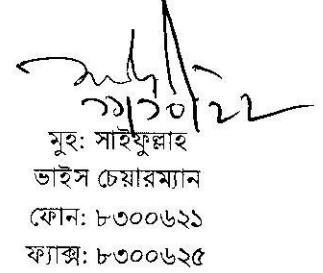 ১১/১০/২২
মুহ: সাইফুল্লাহ
ভাইস চেয়ারম্যান
ফোন: ৮৩০০৬২১
ফ্যাক্স: ৮৩০০৬২৫